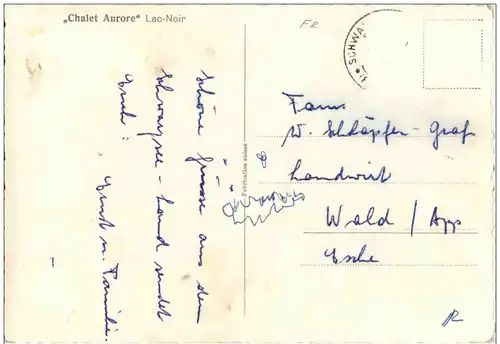 „Chalet Aurore" Lac-Noir
FR
SCHWA
Schöne Grüsse aus dem
Schwarzsee-Land sendet
Euch:
Ernst u. Familie.
Fabrication suisse
Fam.
W. Schläpfer-Graf
Landwirt
Wald / App